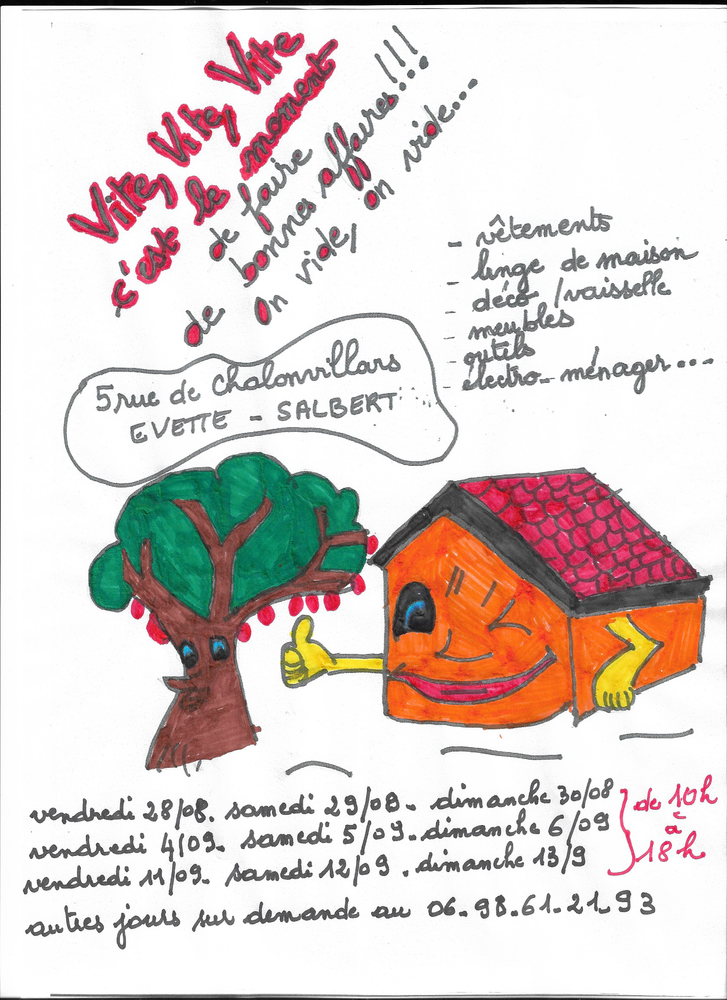 Vite, Vite, Vite
c'est le moment
de faire
de bonnes affaires!!!
on vide, on vide...
- vêtements
- linge de maison
- déco /vaisselle
- meubles
- outils
- électro-ménager...
5 rue de Chalonvillars
EVETTE - SALBERT
vendredi 28/08. samedi 29/08. dimanche 30/08
vendredi 4/09. samedi 5/09. dimanche 6/09
vendredi 11/09. samedi 12/09. dimanche 13/9
de 10h
à
18h
autres jours sur demande au 06.98.61.21.93